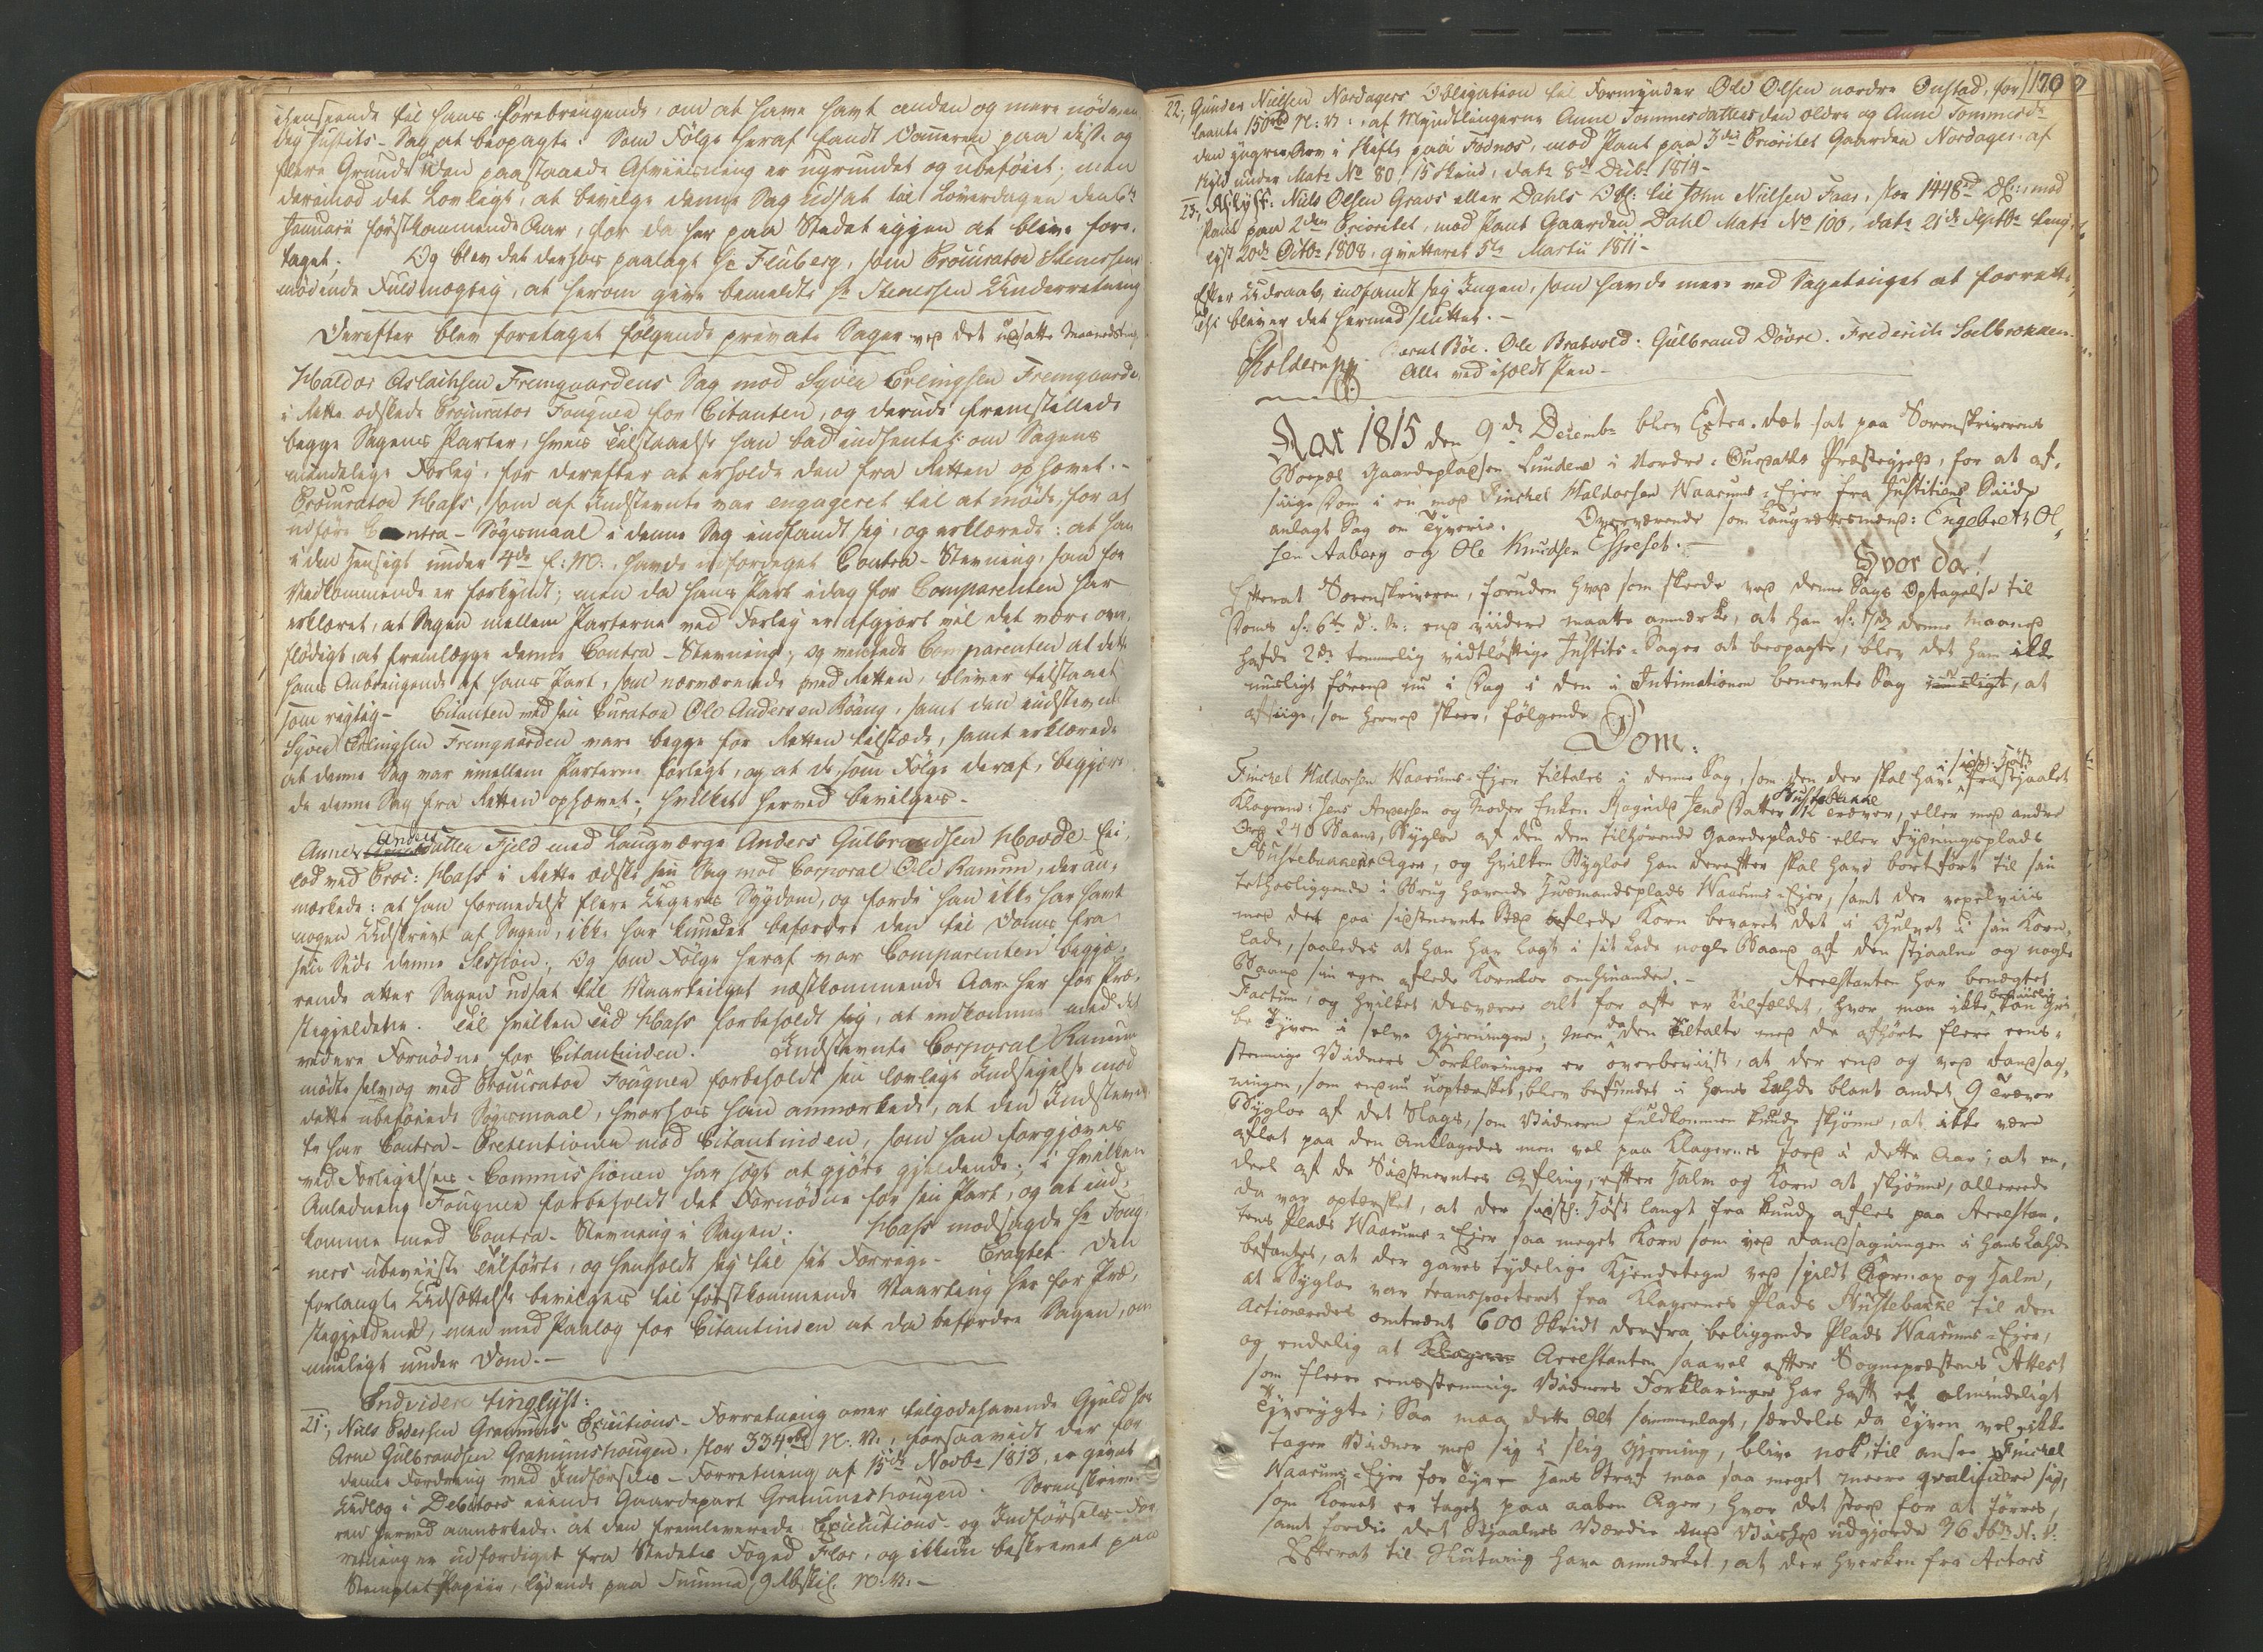 henseende til hans Forebringende, om at have havt anden og mere nødven
dig Justits-Sag at beopagte. Som Følge heraf fandt Dommeren paa disse og
flere Grunde den paastaaede Afviisning er ugrundet og ubeføiet; men
derimod det Lovligt, at bevilge denne Sag udsat til Løverdagen den 6te
Januarii førstkommende Aar, for da her paa Stedet igjen at blive fore-
taget. Og blev det derhos paalagt Hr Fluberg, som Procurator Stenersens
mødende Fuldmægtig, at herom give bemeldte Hr Stenersen Underretning
Derefter blev foretaget følgende private Sager ved det udsatte Maanedsting
Haldor Aslachsen Fremgaardens Sag mod Syver Erlingsen Fremgaarde
i Rette æskede Procurator Fougner for Citanten, og derude fremstillede
begge Sagens Parter, hvis Tilstaaelse han bad indhentet om Sagens
mindelige Forlig, for derefter at erholde den fra Retten ophævet.-
Procurator Hass, som af Indstevnte var engageret til at møde, for at
udføre Contra-Søgsmaal i denne Sag indfandt sig, og erklærede: at han
i den Hensigt under 4de f: M:, havde udfærdiget Contra-Stevning, som for
Vedkommende er forkyndt; men da hans Part idag for Comparenten har
erklæret, at Sagen mellem Parterne ved Forlig er afgjort vil det være over-
flødigt, at fremlægge denne Contra-Stevning; og ventede Comparenten at dette
hans Anbringende af hans Part, som nærværende ved Retten, bliver tilstaaet
som rigtig- Citanten med sin Curator Ole Andersen Röang, samt den indstevnte
Syver Erlingsen Fremgaarden vare begge for Retten tilstæde, samt erklærede
at denne Sag var imellem Parterne forligt, og at de, som Følge deraf, begjær-
de denne Sag fra Retten ophævet; hvilket herved bevilges.-
Anders
Anne datter Fjeld med Laugværge Anders Gulbrandsen Hovde lei
lod ved Proc: Hass i Rette æske sin Sag mod Corporal Ole Ramum, der an-
mærkede: at han formedelst flere Ugers Sygdom, og fordi han ikke har havt
nogen Udskrivt af Sagen, ikke har kundet befordre den til Doms fra
sin Side denne Session; Og som Følge heraf var Comparenten begjæ-
rende atter Sagen udsat til Vaartinget næstkommende Aar her for Præ-
stegjeldene. Til hvilken Tid Hass forbeholdt sig, at indkomme med det
videre Fornødne for Citantinden. Indstevnte Corporal Ramum
mødte selv, og ved Procurator Fougner forbeholdt sin lovlige Indsigelse mod
dette ubeføiede Søgsmaal, hvorhos han anmærkede, at den Indstevn-
te har Contra-Pretentioner mod Citantinden, som han forgjæves
ved Forligelses-Commissionen har søgt at gjøre gjeldende; i hvilken
Anledning Fougner forbeholdt det Fornødne for sin Part, og at ind-
komme med Contra-Stevning i Sagen. Hass modsagde Hr Foug-
ners ubeviiste Tilførte, og henholdt sig til sit Forrige- Eragtet. Den
forlangte Udsættelse bevilges til førstkommende Vaarting her for Præ-
stegjeldene, men med Paalæg for Citantinden at da befordre Sagen, om
mueligt under Dom.-
Endvidere tinglyst:
21; Niels Pedersen Gramums Executions-Forretning over tilgodehavende Gjeld hos
Arne Gulbrandsen Gramumshougen, stor 334rbd N: V:, forsaavidt der for
denne Fordring med Indførsels-Forretning af 15de Novbr 1813, er gjort
Udlæg i Debitors eiende Gaardepart Gramumshougen. Sorenskrive-
ren herved anmærkede: at den fremleverede Executions- og Indførsels-For-
retning er udfærdiget fra Stedets Foged Floer, og ikkun beskrevet paa
Stemplet Papiir, lydende paa Summa 9 Rbskil. N: V:-
170
22; Gunder Nielsen Nordagers Obligation til Formynder Ole Olsen nordre Onstad, for
laante 150rbd N: V:, af Myndlingerne Anne Tommesdatters den ældre og Anne Tommesd-
den yngres Arv i Skifte paa Fodnæs, mod Pant paa 3die Prioritet Gaarden Nordager, af
Skyld under Matr No 80, 15 Skind, datr 8de Dcbr 1814-
23; Aflyst: Niels Olsen Gravs eller Dahls Obl: til John Nielsen Faar, stor 1448rd D: C:, mod
Pant paa 2den Prioritet, mod Pant Gaarden Dahl Matr No 100, datr 21de Septbr ting-
lyst 20de Octbr 1808, qvitteret 5te Martii 1811-
Efter Udraab, indfandt sig Ingen, som havde mere ved Sagetinget at forrette,
Thi bliver det hermed sluttet.-
Kolderup Bernt Böe. Ole Bratvold. Gulbrand Dövre. Frederich Solbrekken.
Alle ved iholdt Pen-
Aar 1815 den 9de Decembr blev Extra-Ret sat paa Sorenskriverens
Boepæl Gaardeplassen Lundene i Nordre-Aurdahls Præstegjeld, for at af-
siige Dom i en mod Finchel Haldorsen Waarums-Ejer fra Justitiens Side
anlagt Sag om Tyverie. Overværende som Laugrettesmænd: Engebret Ol-
sen Aaberg og Ole Knudsen Espeset.-
Hvor da!
Efterat Sorenskriveren, foruden hvad som skeede ved denne Sags Optagelse til
Doms d: 6te d: M: end viidere maatte anmærke, at han d: 7de denne Maaned
hafde 2de temmelig vidtløftige Justits-Sager at beopagte, blev det ham ikke
mueligt førend nu i Dag i den i Intimationen benevnte Sag, at
afsiige, som herved skeer, følgende
Dom:
Finchel Haldorsen Waarums-Ejer tiltales i denne Sag, som den der skal have i sidstl: Høst frastjaalet
Klagerne: Jens Andersen og Moder Enken Ragnild Jens Datter Hustebakke 12 Traver, eller med andre
Ord 240 Baand, Byglod af den dem tilhørende Gaardeplads eller Rydningsplads
Hustebakkens Ager, og hvilken Bygloe han derefter skal have bortført til sin
tethosliggende i Brug havende Huusmandsplads Waarums-Ejer, samt der vexelviis
med det paa sidstnevnte Sted aflede Korn bevaret det i Gulvet i sin Korn-
lade, saaledes at han har lagt i sit Lade nogle Baand af den stjaalne og nogle
Baand sin egen aflede Kornloe omhinanden.- Arrestanten har benægtet
Factum, og hvilket desværre alt for ofte er Tilfældet, hvor man ikke beviislig kan gri-
be Tyven i selve Gjerningen; Men da den Tiltalte med de afhørte flere eens-
stemmige Vidners Forklaringer er overbeviist, at der end og ved Randsag-
ningen, som endnu uoptærsket, blev befundet i hans Lahde blant andet 9 Traver
Bygloe af det Slags, som Vidnerne fuldkommen kunde skjønne, at ikke være
aflet paa den Anklagedes men vel paa Klagernes Jord i dette Aar; at en
deel af de Sidstnevntes Afling, efter Halm og Korn at skjønne, allerede
da var optærsket, at der sidstl: Høst langt fra kunde afles paa Arrestan-
tens Plads Waarums-Ejer saa meget Korn som ved Randsagningen i hans Lahde
befantes, at der gaves tydelige Kjendetegn ved spildt Kornax og Halm,
at Bygloe var transporteret fra Klagernes Plads Hustebakke til den
Actioneredes omtrent 600 Skridt derfra beliggende Plads Waarums-Ejer,
og endelig at Arrestanten saavel efter Sognepræstens Attest
som flere eensstemmige Vidners Forklaringer har haft et almindeligt
Tyverygte; Saa maa dette Alt sammenlagt, særdeles da Tyven vel ikke
tager Vidner med sig i slig Gjerning, blive nok til ansee Finchel
Waarums-Ejer for Tyv- Hans Straf maa saa meget meere qvalificere sig,
som Kornet er taget paa aaben Ager, hvor det stod for at tørres,
samt fordie det Stjaalnes Værdie udgjorde 76 rbd N: V:
Efterat til Slutning have anmærket, at der hverken fra Actors